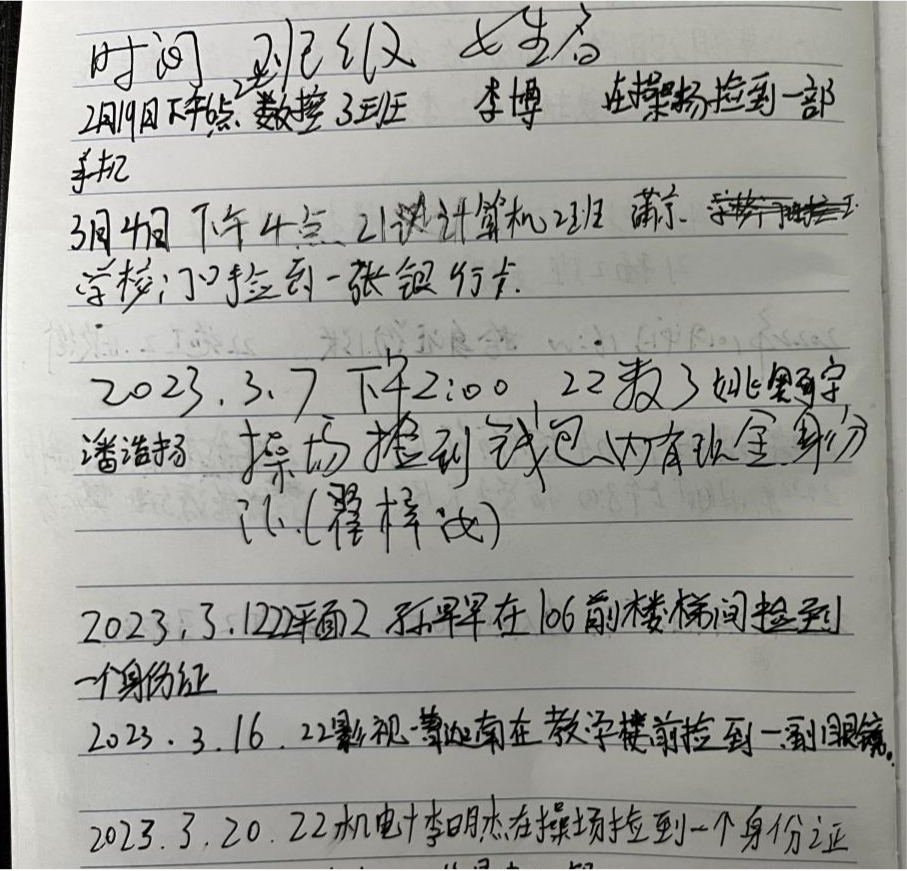 时间 班级 姓名
2月19日下午6点 22数控3班 李博 在操场捡到一部
手机
3月4日 下午4点 21 计算机2班 蒲京
学校门口捡到一张银行卡.
2023.3.7 下午2:00 22数3 姚 宇
潘浩扬 操场捡到钱包内有现金.身份
证.(翟梓 )
2023.3.12 22平面2 孙早早在106前楼梯间捡到
一个身份证
2023.3.16.22影视一 南在教学楼前捡到一副眼镜.
2023.3.20.22机电十李明杰在操场捡到一个身份证